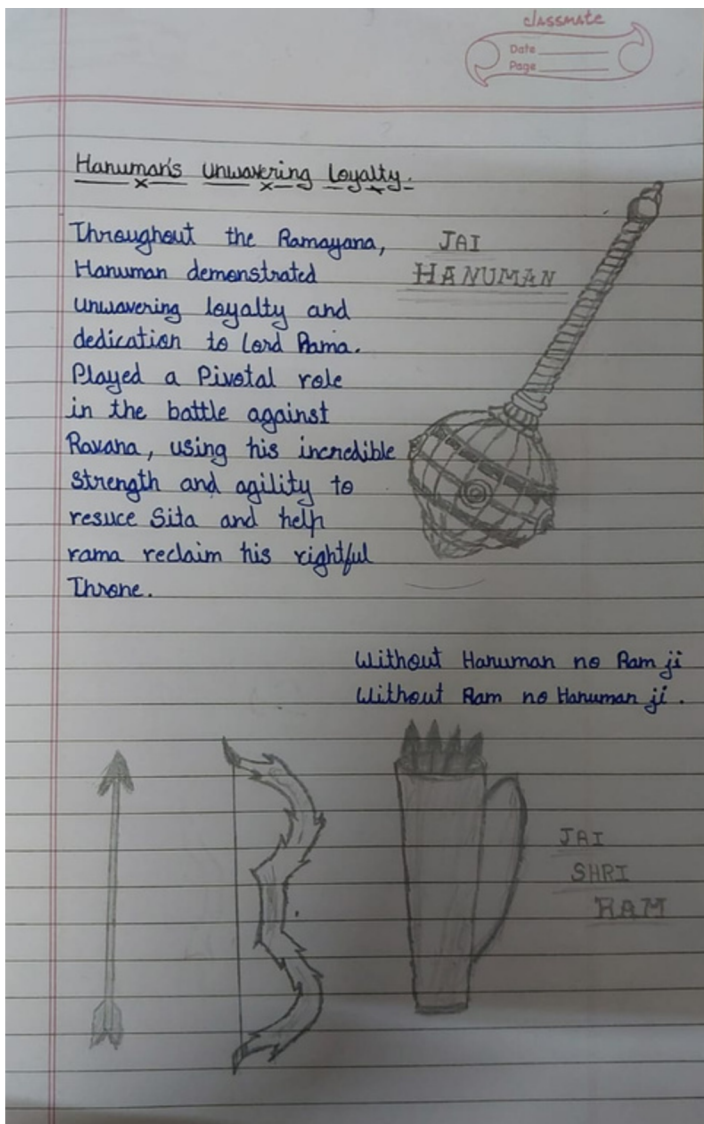 classmate
Date
Page
Hanuman's Unwavering Loyalty.
Throughout the Ramayana,
Hanuman demonstrated
unwavering loyalty and
dedication to Lord Rama.
Played a Pivotal role
in the battle against
Ravana, using his incredible
strength and agility to
resuce Sita and help
rama reclaim his rightful
Throne.
JAI
HANUMAN
Without Hanuman no Ram ji
Without Ram no Hanuman ji.
JAI
SHRI
RAM